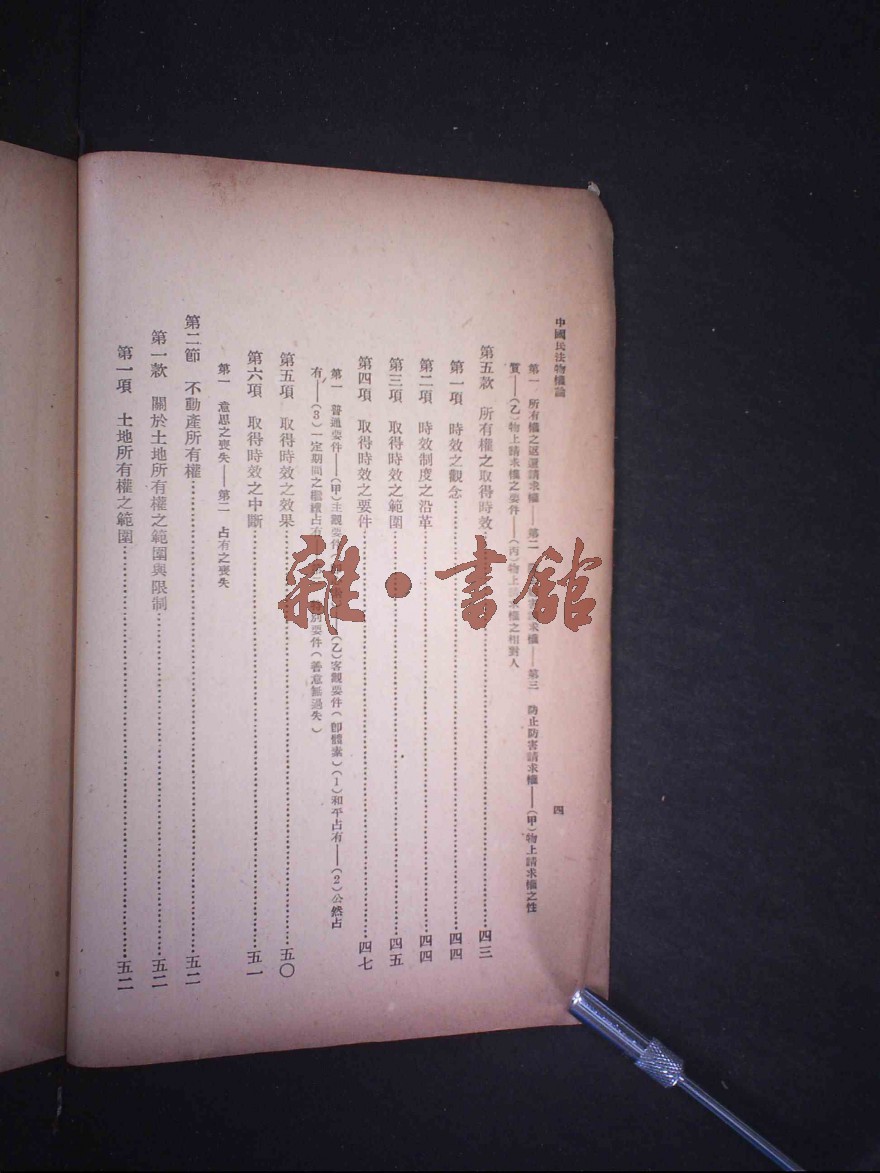 中國民法物權論
四
第一　所有權之返還請求權——第二　害請求權——第三　防止防害請求權——(甲)物上請求權之性
質——(乙)物上請求權之要件——(丙)物上請求權之相對人
第五款　所有權之取得時效……四三
第一項　時效之觀念……四四
第二項　時效制度之沿革……四四
第三項　取得時效之範圍……四五
第四項　取得時效之要件……四七
第一　普通要件——(甲)主觀要件(乙)客觀要件(卽體素)(1)和平占有——(2)公然占
有——(3)一定期間之繼續占有　別要件(善意無過失)
第五項　取得時效之效果……五〇
第六項　取得時效之中斷……五一
第一　意思之喪失——第二　占有之喪失
第二節　不動產所有權……五二
第一款　關於土地所有權之範圍與限制……五二
第一項　土地所有權之範圍……五二
雜·書館